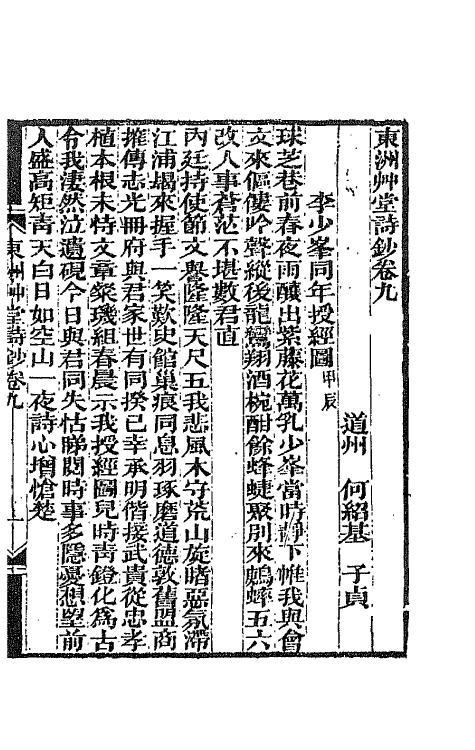 東洲艸堂詩鈔卷九
道州　何紹基　子貞
李少峯同年授經圖甲辰
球芝巷前春夜雨釀出紫藤花萬乳少峯當時靜下帷我與曾
文來傴僂吟聲縱後龍鸞翔酒椀酣餘蜂蜨聚別來鵷蟀五六
改人事蒼茫不堪數君直
內廷持使節文譽隆隆天尺五我悲風木守荒山旋睹惡氛滯
江浦朅來握手一笑歎史館巢痕同息羽琢磨道德敦舊盟商
搉傳志光冊府與君家世有同揆已幸承明偕接武貴從忠孝
植本根未恃文章粲璣組春晨示我授經圖兒時靑鐙化爲古
令我淒然泣遺硯今日與君同失怙睇閱時事多隱憂想望前
人盛高矩靑天白日如空山一夜詩心增愴楚
東洲艸堂詩鈔卷九
一